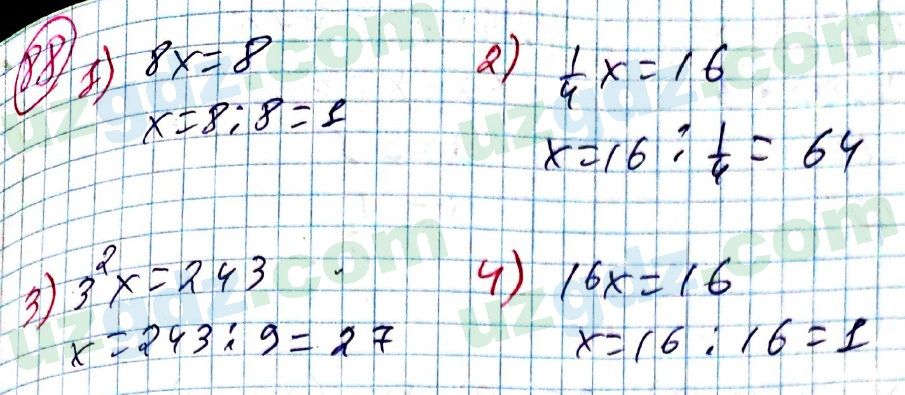 88 1) 8x=8
x=8:8=1
2) 1/4 x=16
x=16:1/4= 64
3) 3²x=243
x=243:9=27
4) 16x=16
x=16:16=1
uzgdz.com
uzgdz.com
uzgdz.com
uzgdz.com